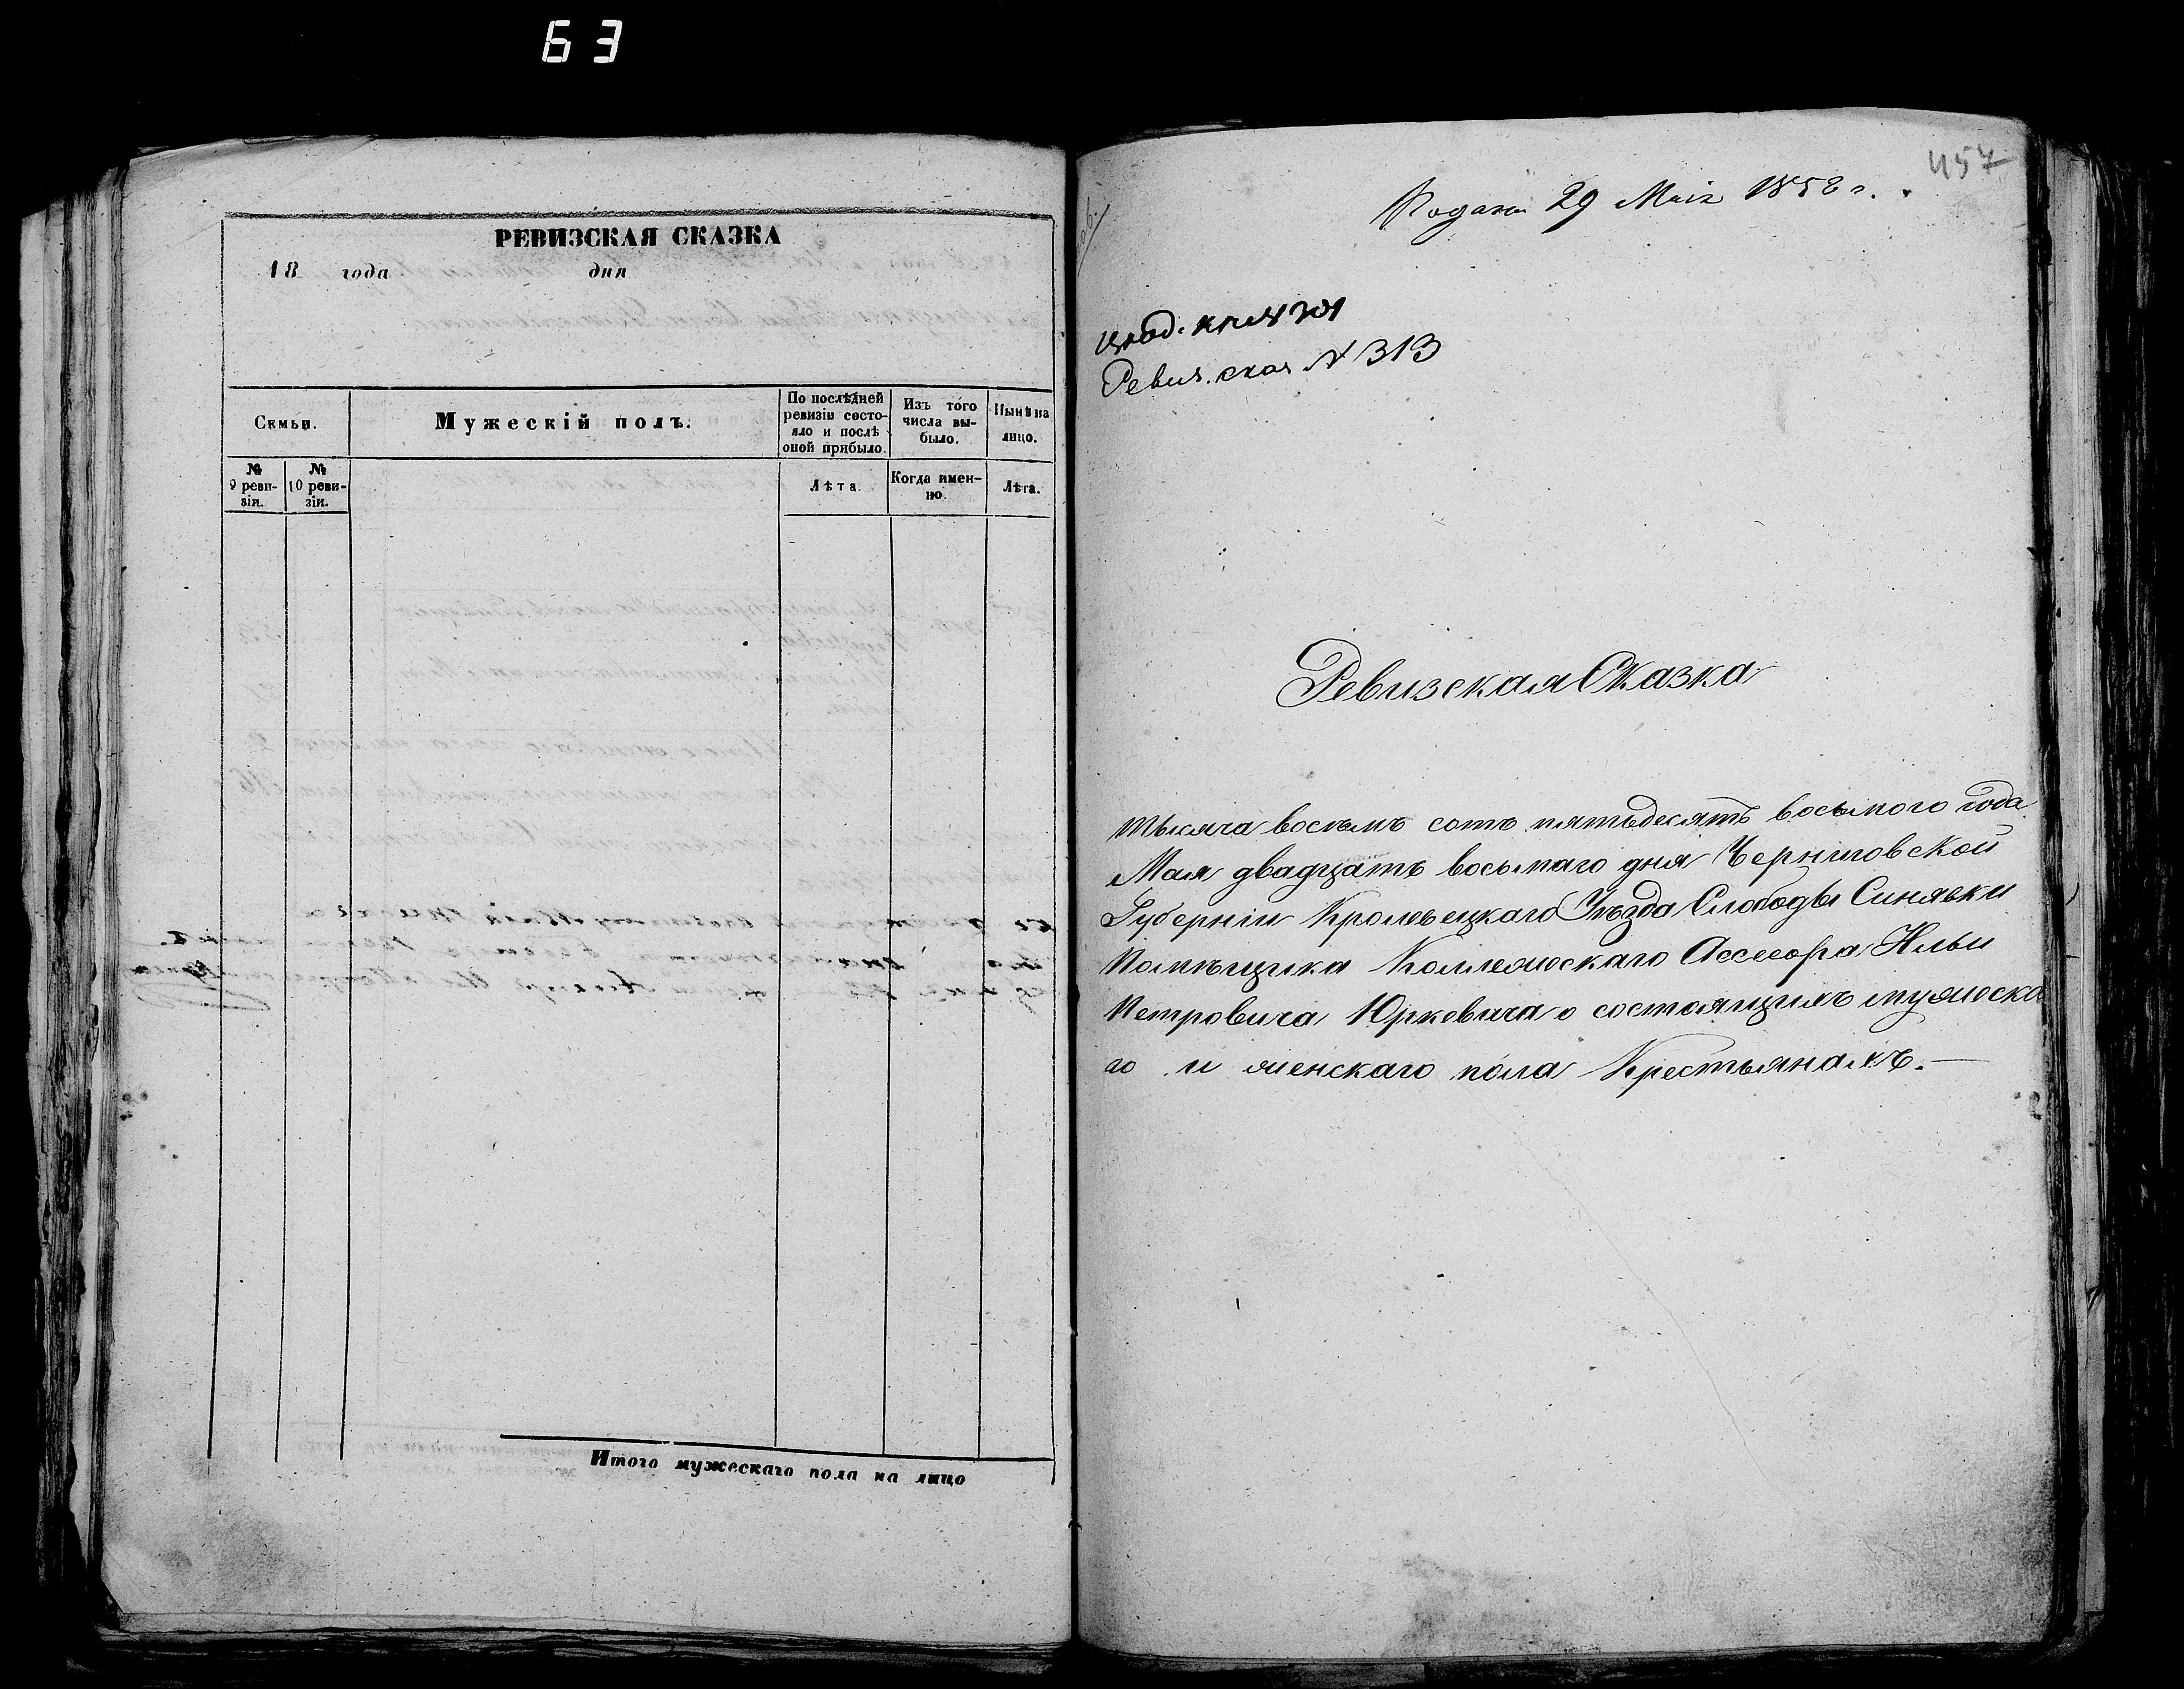 63
РЕВИЗСКАЯ СКАЗКА
18 года дня
Семьи.
Мужескій полъ.
По послѣдней ревизіи состо-
яло и послѣ
оной прибыло.
Изъ того
числа вы-
было.
Нынѣ на
лицо.
№
9 реви-
зіи.
№
10 реви-
зіи.
Лѣта.
Когда имен-
но.
Лѣта.
Итого мужескаго пола на лицо
457
Подана 29 Маія 1858 г.
Ревиз. сказ. N 313
Ревизская Сказка
тысяча восемь сотъ пятьдесятъ восьмого года
Мая двадцать восьмаго дня Черниговской
Губерніи Кролевецкаго Уѣзда Слободы Синявки
Помѣщика Коллежскаго Ассесора Ильи
Петровича Юркевича о состоящихъ мужеска
го и женскаго пола Крестьянахъ.